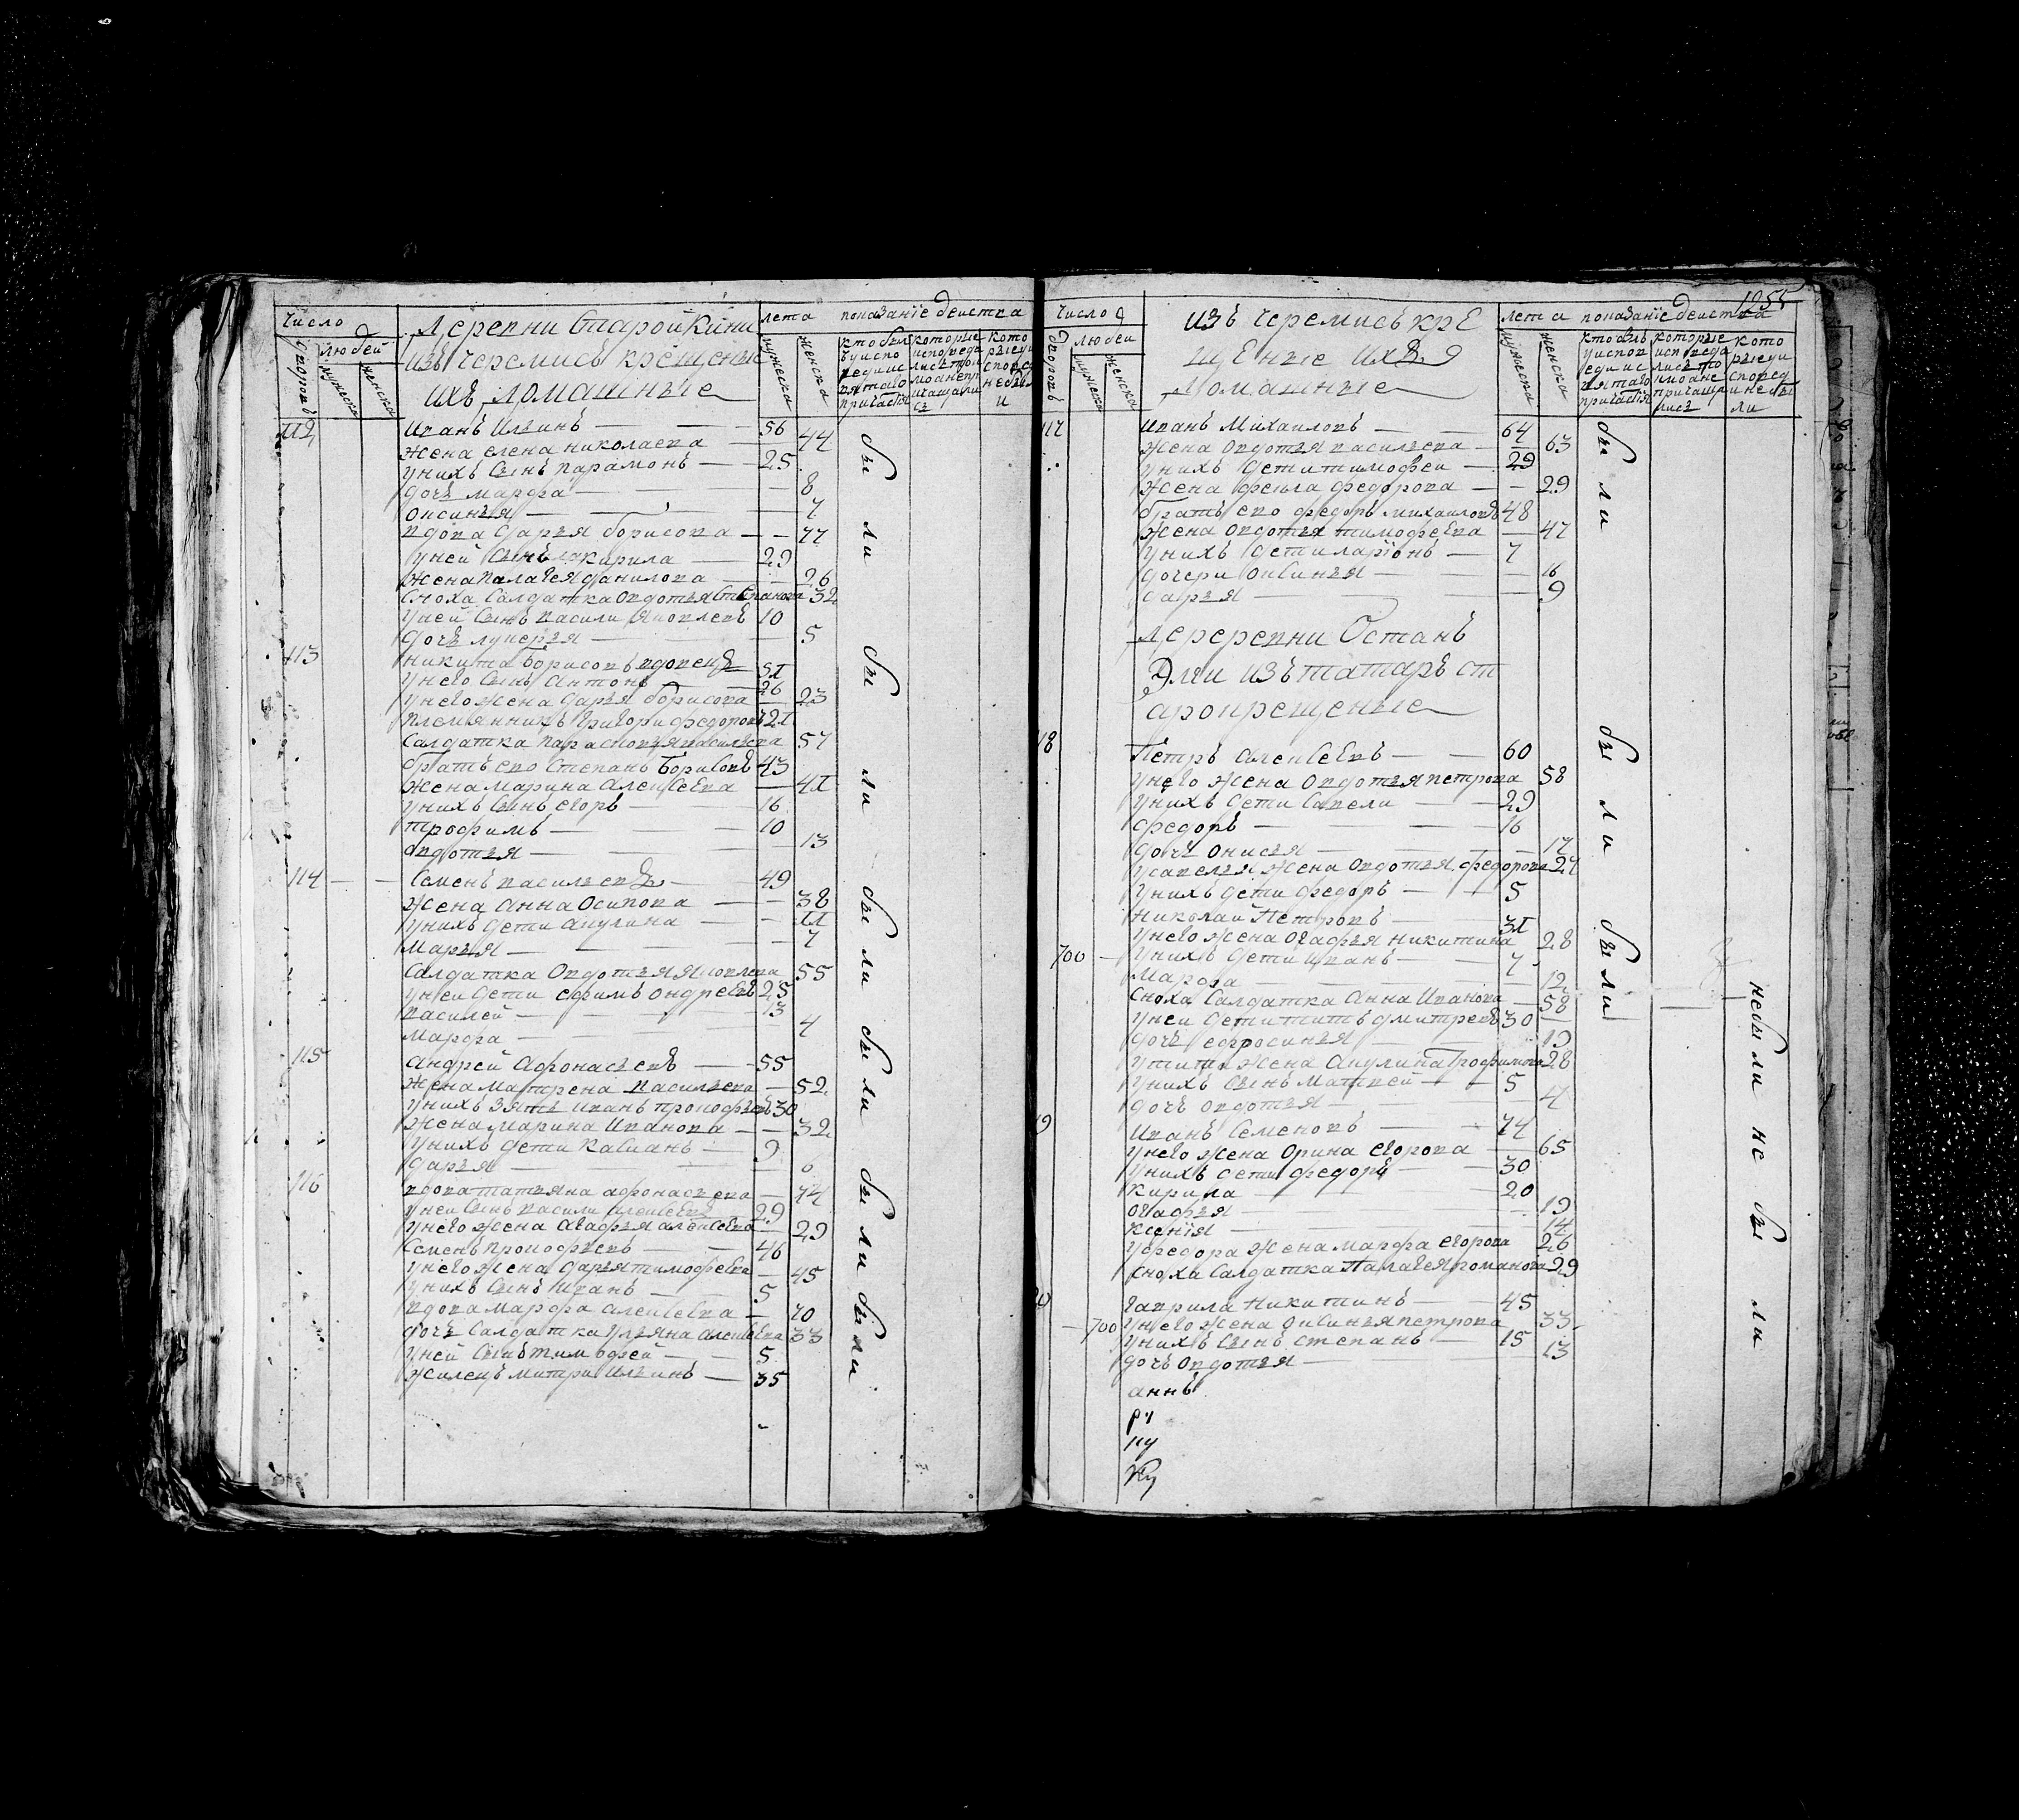 число
дворовъ
людей
мужеска
женска
Деревни Старой Кини
изъ черемисъ крещеные
ихъ домашные
лета
мужеска
женска
показанїе действа
кто былъ у исповеди и святаго причастїя
которые исповедались токмо а не причащались
которые у исповеди не были
112
Иванъ Ильинъ 56
жена елена николаева 44
у нихъ сынъ парамонъ 25
дочь марфа 8
оксинья 7
вдова дарья борисова 77
у ней сынъ кирила 29
жена палагея данилова 26
сноха салдатка овдотья степанова 32
у ней сынъ василей яковлевъ 10
дочь лукерья 5
113
никита борисовъ вдовецъ 51
у него сынъ антонъ 26
у него жена дарья борисова 23
племянникъ григори федоровъ 21
салдатка парасковья васильева 57
братъ ево степанъ борисовъ 43
жена марина алексеева 41
у нихъ сынъ егоръ 16
трофимъ 10
овдотья 13
114
семенъ васильевъ 49
жена анна осипова 38
у нихъ дети акулина 11
марья 7
салдатка овдотья яковлева 55
у ней дети ефимъ ондреевъ 25
василей 13
марфа 4
115
андрей афонасьевъ 55
жена матрена васильева 52
у нихъ зять иванъ прокофьевъ 30
жена марина иванова 32
у нихъ дети касианъ 9
дарья
116
вдова татьяна афонасьева 74
у ней сынъ васили алексеевъ 29
у него жена агафья алексеева 29
семенъ прокофьевъ 46
у него жена дарья тимофеева 45
у нихъ сынъ иванъ 5
вдова марфа алексеева 70
дочь салдатка ульяна алексеева 33
у ней сынъ тимофей 5
жилецъ митри ильинъ 35
бы ли
бы ли
бы ли
бы ли
бы ли
бы ли
1055
число
дворовъ
людей
мужеска
женска
изъ черемисъ кре
щеные ихъ
домашные
лета
мужеска
женска
показанїе действа
кто былъ у исповеди и святаго причастїя
которые исповедались токмо а не причащались
которые у исповеди не были
117
Иванъ Михаиловъ 64
жена овдотья васильева 63
у нихъ дети тимофеи 29
жена фекла федорова 29
братъ ево федоръ михаиловъ 48
жена овдотья тимофеева 47
у нихъ дети ларїонъ 7
дочери оксинья 16
дарья 9
деревни Останъ
Элги изъ татаръ ст
арокрещеные
18
Петръ алексеевъ 60
у него жена овдотья петрова 58
у нихъ дети савели 29
федоръ 16
дочь онисья 17
у савелья жена овдотья федорова 27
у нихъ дети федоръ 5
николай петровъ 31
у него жена агафья никитина 28
700
у нихъ дети иванъ 7
марфа 12
сноха салдатка анна иванова 58
у ней дети титъ дмитревъ 30
дочь ефросинья 19
у тита жена акулина трофимова 28
у нихъ сынъ матвей 5
дочь овдотья 4
9
иванъ семеновъ 74
у него жена орина егорова 65
у нихъ дети федоръ 30
кирила 20
огафья 19
ксенїя 14
у федора жена марфа егорова 26
сноха салдатка палагея романова 29
гаврила никитинъ 45
700
у него жена оксинья петрова 33
у нихъ сынъ степанъ 15
дочь овдотья 13
аннъ
бы ли
бы ли
бы ли
не бы ли
не бы ли